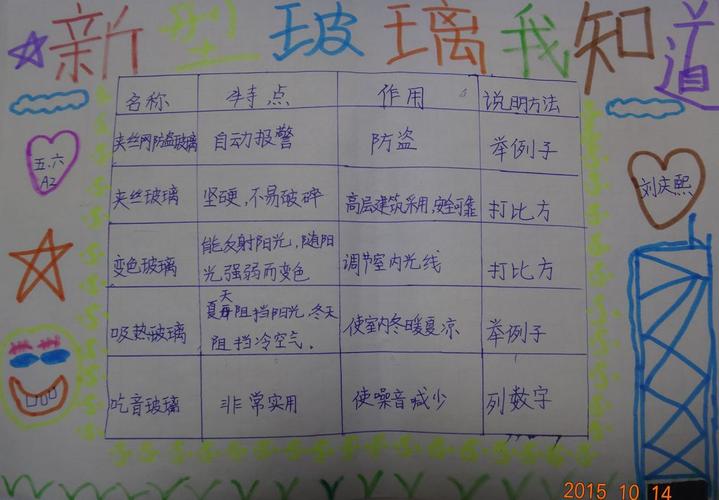 新型玻璃我知道
名称 特点 作用 说明方法
夹丝网防盗玻璃 自动报警 防盗 举例子
夹丝玻璃 坚硬,不易破碎 高层建筑采用,安全可靠 打比方
变色玻璃 能反射阳光,随阳 调节室内光线 打比方
光强弱而变色
吸热玻璃 夏天阻挡阳光,冬天 使室内冬暖夏凉 举例子
阻挡冷空气。
吃音玻璃 非常实用 使噪音减少 列数字
五.六
A2
刘庆熙
2015 10 14